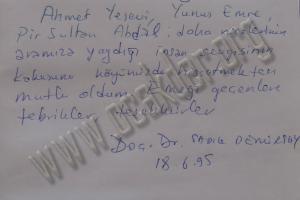 Ahmet Yesevi, Yunus Emre,
Pir Sultan Abdal, daha nicelerinin
aramıza yaydığı insan sevgisinin
kokusunu köyünüzde hissetmekten
mutlu oldum. Emeği geçenlere
tebrikler teşekkürler
Doç. Dr.
18.6.95